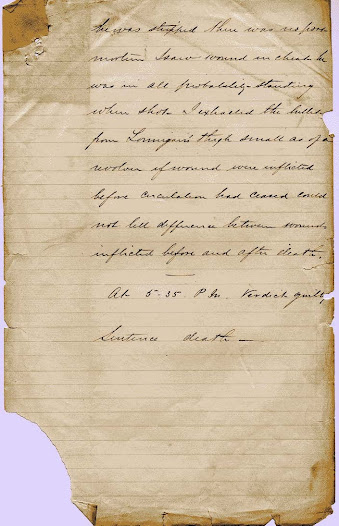 he was stripped there was no post
mortem I saw wound in cheek he
was in all probability standing
when shot I extracted the bullet
from Lonnigan's thigh small as of a
revolver if wound were inflicted
before circulation had ceased could
not tell difference between wounds
inflicted before and after death.
At 5-35 P.M. Verdict guilty
Sentence death —